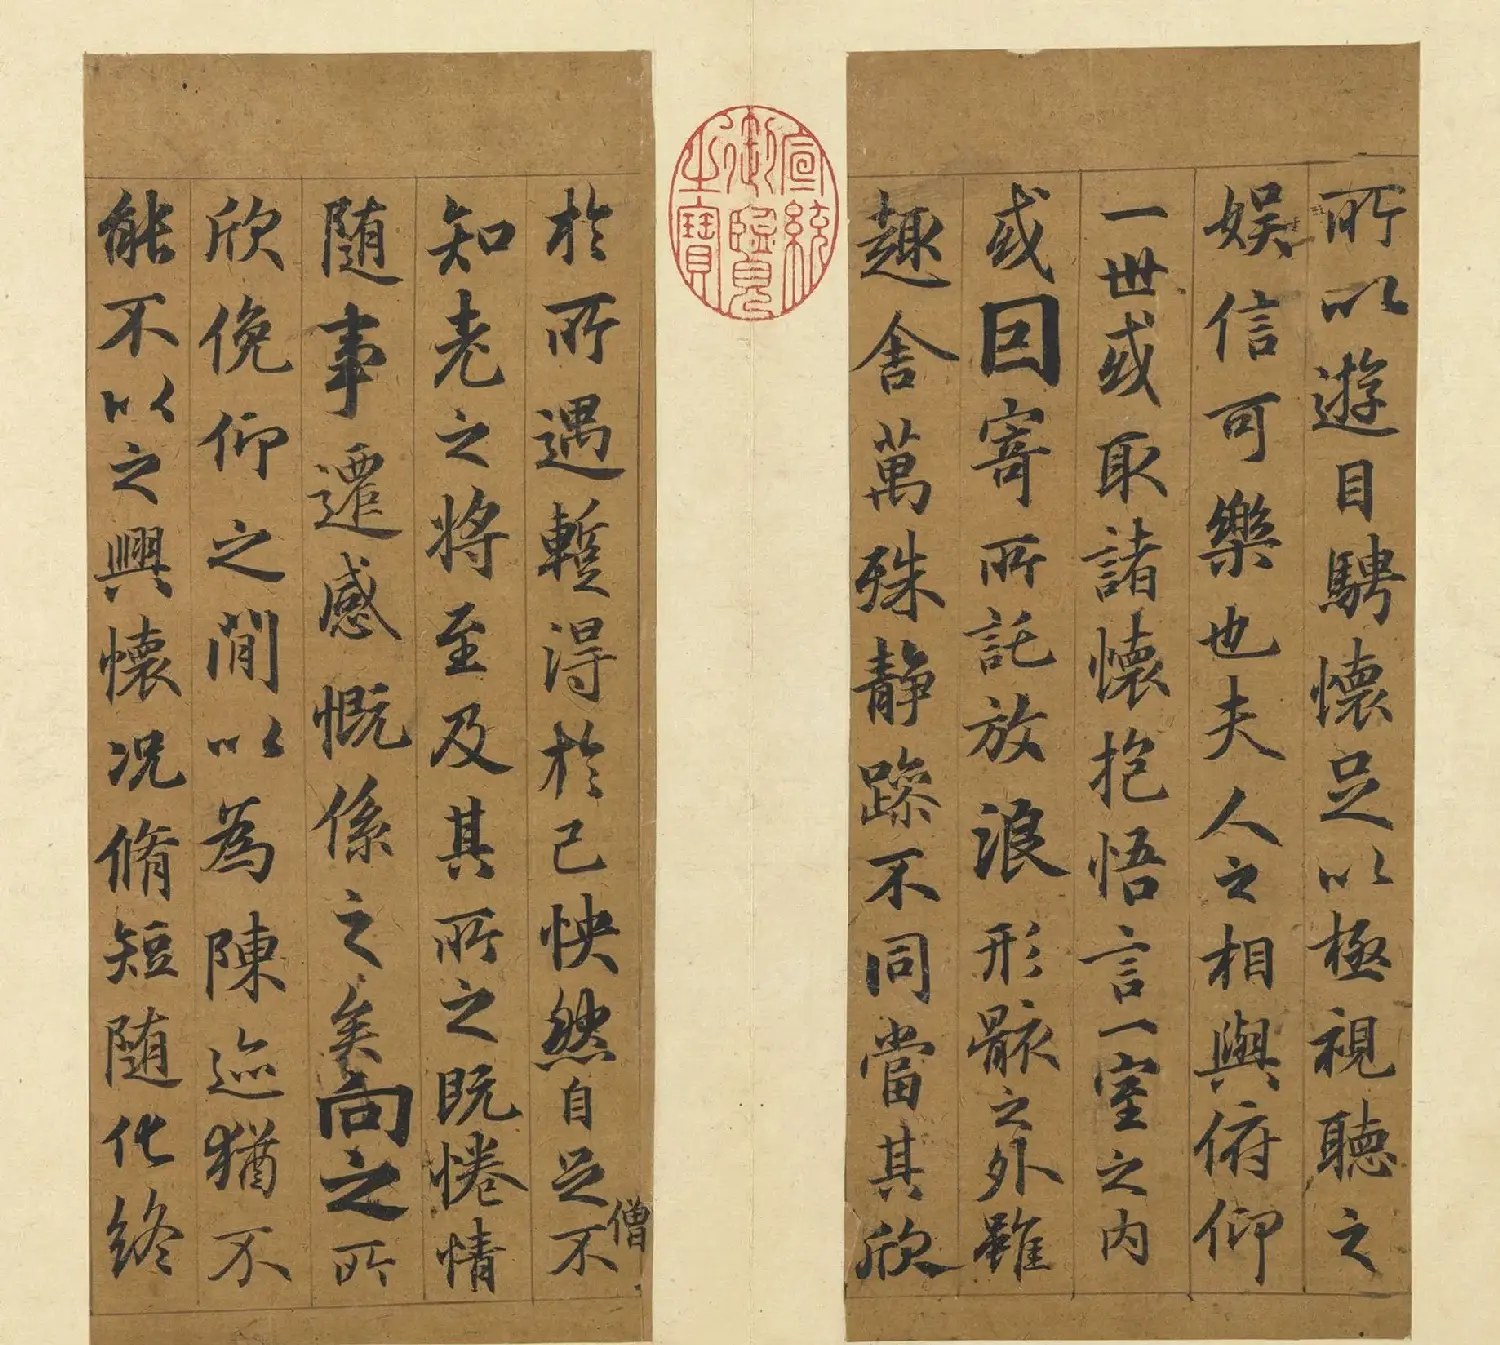 所以遊目騁懷足以極視聽之
娛信可樂也夫人之相與俯仰
一世或取諸懷抱悟言一室之內
或因寄所託放浪形骸之外雖
趣舍萬殊靜躁不同當其欣
宣統御覽之寶
於所遇暫得於己怏然自足不
僧
知老之將至及其所之既惓情
隨事遷感慨係之矣向之所
欣俛仰之閒以為陳迹猶不
能不以之興懷況脩短隨化終